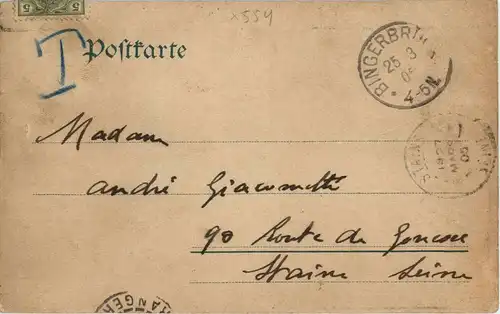 5 5
x554
T
Postkarte
BINGERBR
25 3
4-5N.
Madam
André Giacometti
90 Route de Gonesse
Staine Seine
MARS
05